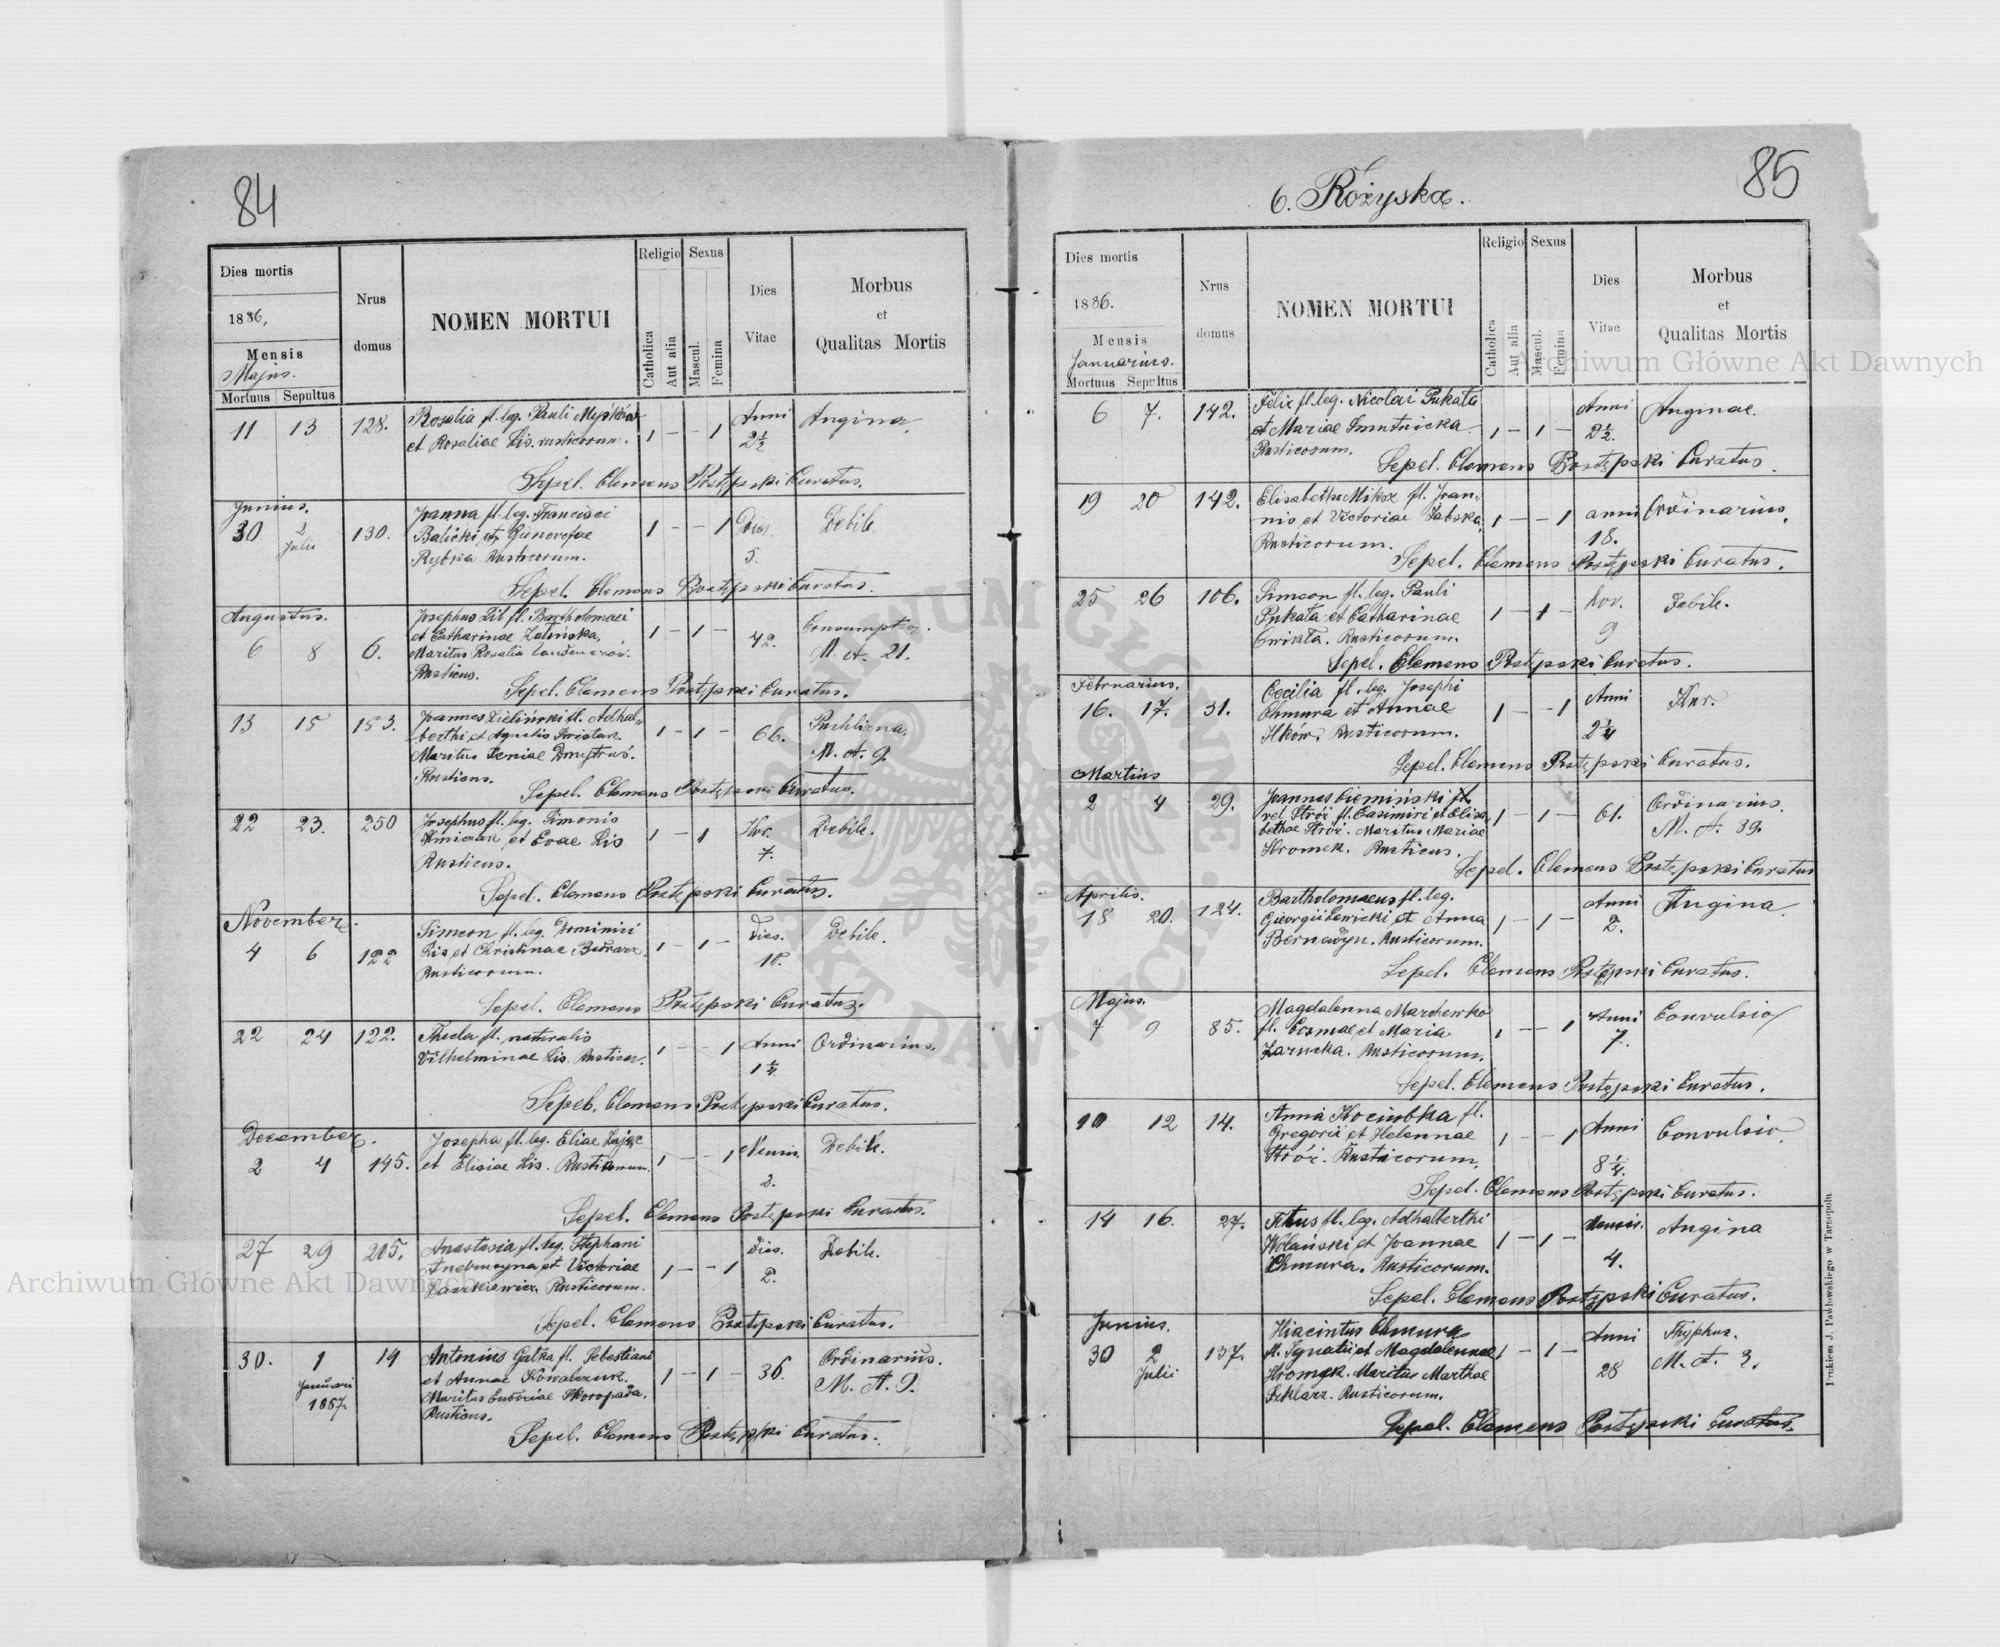 84
Dies mortis
1886,
Mensis
Majus.
Mortuus Sepultus
Nrus
domus
NOMEN MORTUI
Religio
Catholica
Aut alia
Sexus
Mascul.
Femina
Dies
Vitae
Morbus
et
Qualitas Mortis
11 13 128. Rosalia fl. leg. Pauli 1 - - 1 Anni Angina
et Rosaliae Lis. rusticorum. 2 1/2
Sepel. Clemens Postępski Curatus.
Junius.
30 2 Julii 130. Joanna fl. leg. Francisci 1 - - 1 Dies Debile
Balicki et Genovefae 5.
Rybka Rusticorum.
Sepel. Clemens Postępski Curatus.
Augustus.
6 8 6. Josephus fl. Bartholomaei 1 - 1 - 42. Consumptio.
et Catharinae Zalińska, M. A. 21.
Maritus Rosalia
Rusticus.
Sepel. Clemens Postępski Curatus.
13 15 153. Joannes Zieliński fl. Adhal- 1 - 1 - 66.
berthi et Agnetis M. A. 9.
Maritus Xeniae Dmytrus.
Rusticus.
Sepel. Clemens Postępski Curatus.
22 23. 250 Josephus fl. leg. Simonis 1 - 1 Hor. Debile.
et Evae Lis 7.
Rusticus.
Sepel. Clemens Postępski Curatus.
November.
4 6 122 Simeon fl. leg. Dominici 1 - 1 - Dies. Debile.
Lis et Christinae Bednarz.
Rusticorum.
Sepel. Clemens Postępski Curatus.
22 24 122. Thecla fl. naturalis 1 - - 1 Anni Ordinarius.
Vilhelminae Lis. Rusticor. 1 1/4
Sepel. Clemens Postępski Curatus.
December.
2 4 145. Josepha fl. leg. Eliae Zając 1 - - 1 Mensis. Debile.
et Elisiae Lis. Rusticorum. 2.
Sepel. Clemens Postępski Curatus.
27 29 205. Anastasia fl. leg. Stephani 1 - - 1 Dies. Debile.
et Victoriae 2.
Rusticorum.
Sepel. Clemens Postępski Curatus.
30. 1 Januarii 1887 19 Antonius Gałka fl. Sebastiani 1 - 1 - 36. Ordinarius.
et Annae Kowalczuk. M. A. 9.
Maritus Eudoxiae Skoropada.
Rusticus.
Sepel. Clemens Postępski Curatus.
85
6. Różyska.
Dies mortis
1886.
Mensis
Januarius.
Mortuus Sepultus
Nrus
domus
NOMEN MORTUI
Religio
Catholica
Aut alia
Sexus
Mascul.
Femina
Dies
Vitae
Morbus
et
Qualitas Mortis
6 7. 142. Felix fl. leg. Nicolai Pukata 1 - 1 - Anni Anginae.
et Mariae Smutnicka 2 1/2.
Rusticorum.
Sepel. Clemens Postępski Curatus.
19 20 142. Elisabetha Miksz fl. Joan- 1 - - 1 anni Ordinarius.
nis et Victoriae Babska, 18.
Rusticorum.
Sepel. Clemens Postępski Curatus.
25 26 106. Simeon fl. leg. Pauli 1 - 1 - hor. Debile.
Pukata et Catharinae 9
Ćwikła. Rusticorum.
Sepel. Clemens Postępski Curatus.
Februarius.
16. 17. 31. Cecilia fl. leg. Josephi 1 - - 1 Anni
Chmura et Annae 2 1/4
Ilków. Rusticorum.
Sepel. Clemens Postępski Curatus.
Martius
2 4 29. Joannes Ciemiński 1 - 1 - 61. Ordinarius.
vel Stróż fl. Casimiri et Elisa- M. A. 39.
bethae Stróż. Maritus Mariae
Hromek. Rusticus.
Sepel. Clemens Postępski Curatus
Aprilis.
18 20. 124. Bartholomaeus fl. leg. 1 - 1 - Anni Angina
Georgii Lewicki et Anna 2.
Bernadyn. Rusticorum.
Sepel. Clemens Postępski Curatus.
Majus.
7 9 85. Magdalenna Marchewka 1 - - 1 Anni Convulsio
fl. Cosmae et Maria 7.
Zarucka. Rusticorum.
Sepel. Clemens Postępski Curatus.
10 12 14. Anna Kociubka fl. 1 - - 1 Anni Convulsio.
Gregorii et Helennae 8 1/4.
Stróż. Rusticorum.
Sepel. Clemens Postępski Curatus.
14 16. 27. Titus fl. leg. Adhalberthi 1 - 1 - Mensis. Angina
Wolański et Joannae 4.
Chmura. Rusticorum.
Sepel. Clemens Postępski Curatus.
Junius.
30 2 Julii 137. Hiacintus Chmura 1 - 1 - Anni Thyphus.
fl. Ignatii et Magdalennae 28 M. A. 3.
Hromek. Maritus Marthae
Szklarz. Rusticorum.
Sepel. Clemens Postępski Curatus.
Drukiem J. Pawłowskiego w Tarnopolu.
Archiwum Główne Akt Dawnych
Archiwum Główne Akt Dawnych
ARCHIWUM GŁÓWNE AKT DAWNYCH